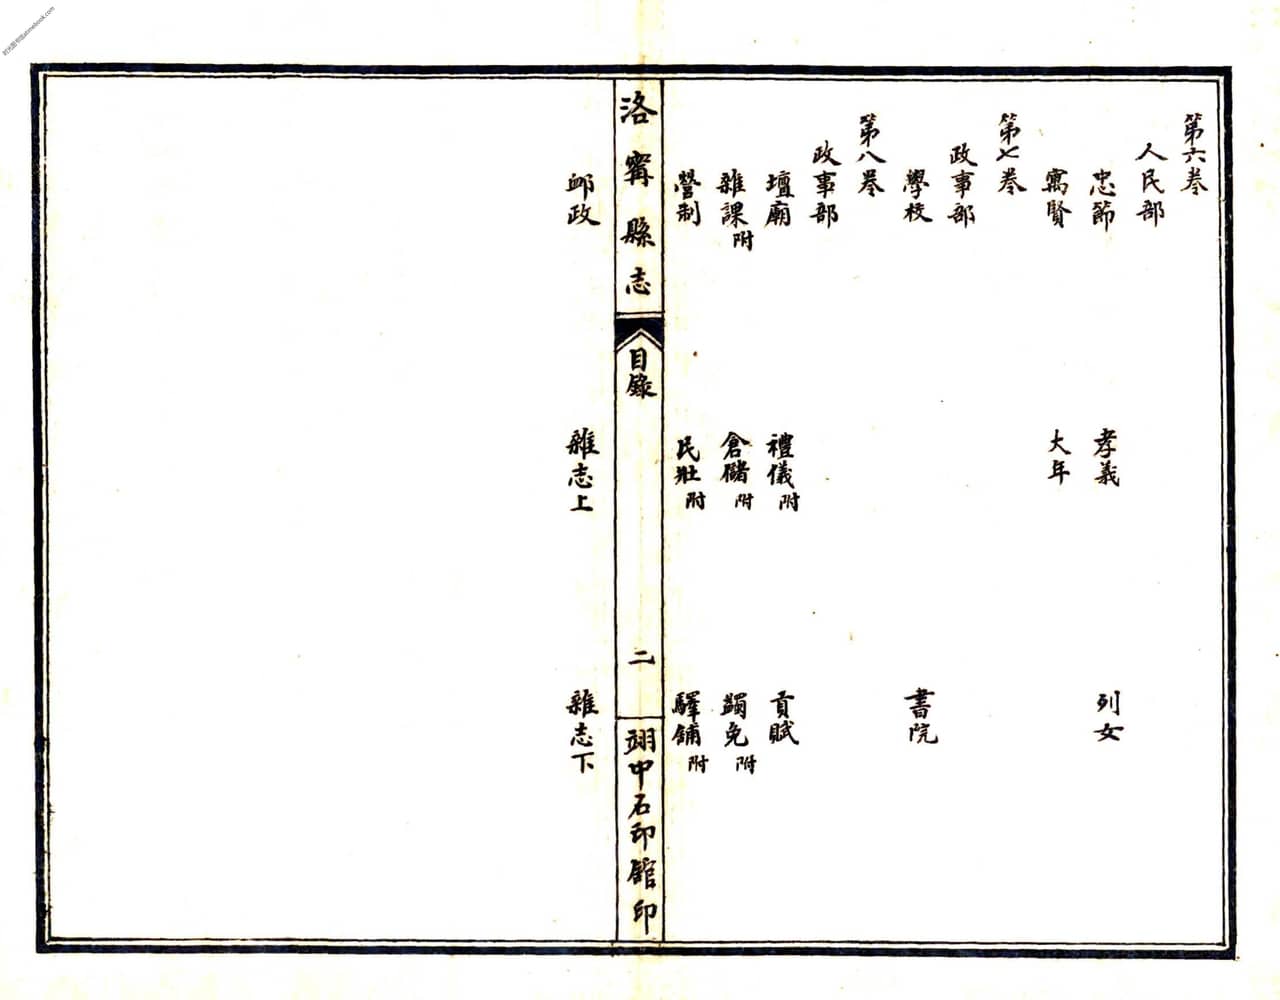 第六卷
人民部
忠節 孝義 列女
寓賢 大年
第七卷
政事部
學校 書院
第八卷
政事部
壇廟 禮儀附 貢賦
雜課附 倉儲附 蠲免附
營制 民壯附 驛鋪附
洛寧縣志 目錄 二 翊中石印館印
邮政 雜志上 雜志下